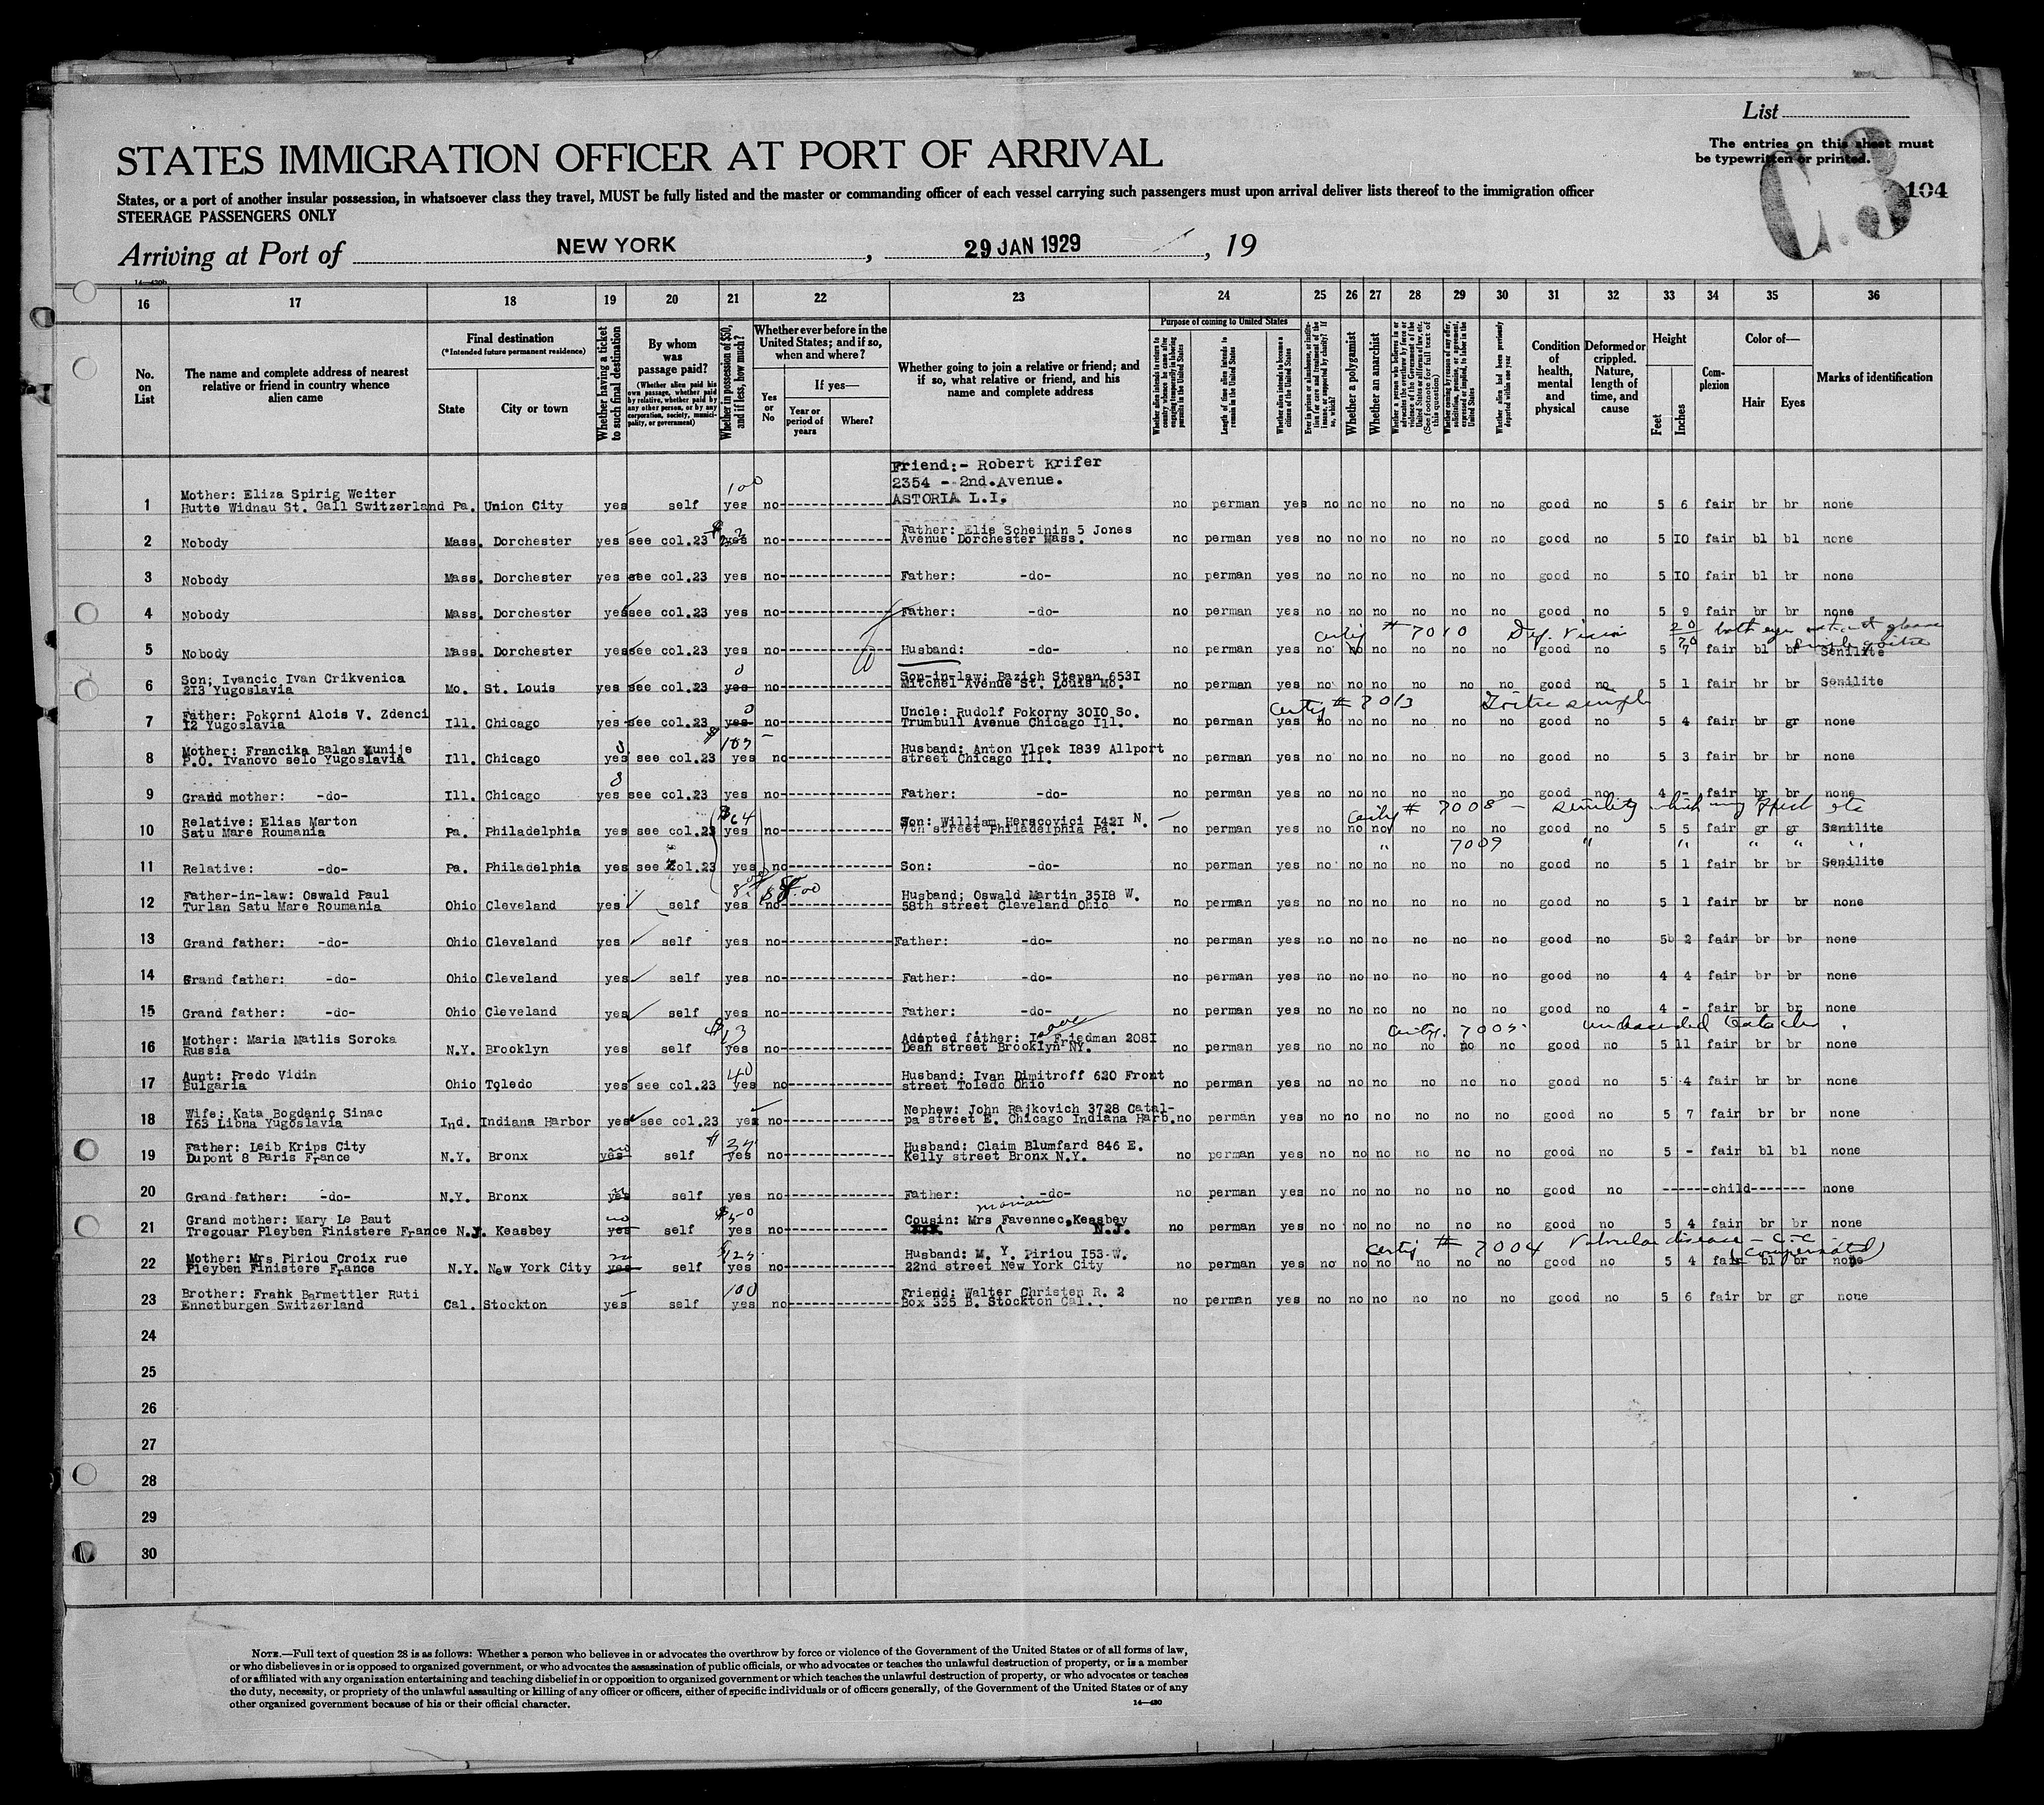 List
The entries on this sheet must
be typewritten or printed.
C.3
104
STATES IMMIGRATION OFFICER AT PORT OF ARRIVAL
States, or a port of another insular possession, in whatsoever class they travel, MUST be fully listed and the master or commanding officer of each vessel carrying such passengers must upon arrival deliver lists thereof to the immigration officer
STEERAGE PASSENGERS ONLY
Arriving at Port of NEW YORK, 29 JAN 1929, 19
14—430b
16 17 18 19 20 21 22 23 24 25 26 27 28 29 30 31 32 33 34 35 36
No. on List
The name and complete address of nearest relative or friend in country whence alien came
Final destination
(*Intended future permanent residence)
State
City or town
Whether having a ticket to such final destination
By whom was passage paid?
(Whether alien paid his own passage, whether paid by relative, whether paid by any other person, or by any corporation, society, municipality, or government)
Whether in possession of $50, and if less, how much?
Whether ever before in the United States; and if so, when and where?
Yes or No
If yes—
Year or period of years
Where?
Whether going to join a relative or friend; and if so, what relative or friend, and his name and complete address
Purpose of coming to United States
Whether alien intends to return to country whence he came after engaging temporarily in laboring pursuits in the United States
Length of time alien intends to remain in the United States
Whether alien intends to become a citizen of the United States
Ever in prison or almshouse, or institution for care and treatment of the insane, or supported by charity? If so, which?
Whether a polygamist
Whether an anarchist
Whether a person who believes in or advocates the overthrow by force or violence of the Government of the United States or all forms of law, etc. (See footnote for full text of this question)
Whether coming by reason of any offer, solicitation, promise, or agreement, expressed or implied, to labor in the United States
Whether alien had been previously deported within one year
Condition of health, mental and physical
Deformed or crippled. Nature, length of time, and cause
Height
Feet
Inches
Complexion
Color of—
Hair
Eyes
Marks of identification
1 Mother: Eliza Spirig Weiter
Hutte Widnau St. Gall Switzerland Pa. Union City yes self 100 yes no Friend:- Robert Krifer
2354 - 2nd.Avenue.
ASTORIA L.I. no perman yes no no no no no no good no 5 6 fair br br none
2 Nobody Mass. Dorchester yes see col.23 yes no Father: Elie Scheinin 5 Jones
Avenue Dorchester Mass. no perman yes no no no no no no good no 5 10 fair bl bl none
3 Nobody Mass. Dorchester yes see col.23 yes no Father: -do- no perman yes no no no no no no good no 5 10 fair bl br none
4 Nobody Mass. Dorchester yes see col.23 yes no Father: -do- no perman yes no no no no no no good no 5 9 fair br br none
certif # 7010 Def. Vision 20/70 both eyes without glasses
simple goitre
5 Nobody Mass. Dorchester yes see col.23 yes no Husband: -do- no perman yes no no no no no no good no 5 7 fair bl br Senilite
6 Son: Ivancic Ivan Crikvenica
213 Yugoslavia Mo. St. Louis yes see col.23 0 yes no Son-in-law: Bazich Stepan 6531
Mitchel Avenue St. Louis Mo. no perman yes no no no no no no good no 5 1 fair br br Senilite
certif # 7013 Goitre simple
7 Father: Pokorni Alois V. Zdenci
12 Yugoslavia Ill. Chicago yes see col.23 0 yes no Uncle: Rudolf Pokorny 3010 So.
Trumbull Avenue Chicago Ill. no perman yes no no no no no no good no 5 4 fair br gr none
8 Mother: Francika Balan Munije
P.O. Ivanovo selo Yugoslavia Ill. Chicago yes see col.23 yes no Husband: Anton Vlcek 1839 Allport
street Chicago Ill. no perman yes no no no no no no good no 5 3 fair br br none
9 Grand mother: -do- Ill. Chicago yes see col.23 yes no Father: -do- no perman yes no no no no no no good no 4 - fair br br none
certif # 7008 - senility which may affect etc
10 Relative: Elias Marton
Satu Mare Roumania Pa. Philadelphia yes see col.23 $64 yes no Son: William Herscovici 1421 N.
7th street Philadelphia Pa. no perman yes no no no no no no good no 5 5 fair gr gr Senilite
" 7009 " " " " "
11 Relative: -do- Pa. Philadelphia yes see col.23 yes no Son: -do- no perman yes no no no no no no good no 5 1 fair br br Senilite
12 Father-in-law: Oswald Paul
Turlan Satu Mare Roumania Ohio Cleveland yes self yes no Husband: Oswald Martin 3518 W.
58th street Cleveland Ohio no perman yes no no no no no no good no 5 1 fair br br none
13 Grand father: -do- Ohio Cleveland yes self yes no Father: -do- no perman yes no no no no no no good no 5 2 fair br br none
14 Grand father: -do- Ohio Cleveland yes self yes no Father: -do- no perman yes no no no no no no good no 4 4 fair br br none
15 Grand father: -do- Ohio Cleveland yes self yes no Father: -do- no perman yes no no no no no no good no 4 - fair br br none
certif. 7005 undescended testicle
16 Mother: Maria Matlis Soroka
Russia N.Y. Brooklyn yes self $13 yes no Adopted father: I. Friedman 2081
Dean street Brooklyn NY. no perman yes no no no no no no good no 5 11 fair br br none
17 Aunt: Fredo Vidin
Bulgaria Ohio Toledo yes see col.23 40 yes no Husband: Ivan Dimitroff 620 Front
street Toledo Ohio no perman yes no no no no no no good no 5 4 fair br br none
18 Wife: Kata Bogdanic Sinac
163 Licna Yugoslavia Ind. Indiana Harbor yes see col.23 yes no Nephew: John Rajkovich 3728 Catal-
pa street E. Chicago Indiana Harb. no perman yes no no no no no no good no 5 7 fair br br none
19 Father: Leib Krips City
Dupont 8 Paris France N.Y. Bronx yes no self yes no Husband: Claim Blumfard 846 E.
Kelly street Bronx N.Y. no perman yes no no no no no no good no 5 - fair bl bl none
20 Grand father: -do- N.Y. Bronx yes self yes no Father: -do- no perman yes no no no no no no good no ------child------- none
21 Grand mother: Mary Le Baut
Tregouar Pleyben Finistere France N.J. Keasbey yes no self $50 yes no Cousin: Mrs Marian Favennec, Keasbey
N.J. no perman yes no no no no no no good no 5 4 fair br br none
certif # 7004 Valvular disease - C-C - (compensated)
22 Mother: Mrs Piriou Croix rue
Pleyben Finistere France N.Y. New York City yes no self $125 yes no Husband: M. Y. Piriou 153-W.
22nd street New York City no perman yes no no no no no no good no 5 4 fair bl br none
23 Brother: Frank Barmettler Ruti
Ennetburgen Switzerland Cal. Stockton yes self 100 yes no Friend: Walter Christen R. 2
Box 335 B. Stockton Cal.. no perman yes no no no no no no good no 5 6 fair br gr none
24
25
26
27
28
29
30
NOTE.—Full text of question 28 is as follows: Whether a person who believes in or advocates the overthrow by force or violence of the Government of the United States or of all forms of law,
or who disbelieves in or is opposed to organized government, or who advocates the assassination of public officials, or who advocates or teaches the unlawful destruction of property, or is a member
of or affiliated with any organization entertaining and teaching disbelief in or opposition to organized government or which teaches the unlawful destruction of property, or who advocates or teaches
the duty, necessity, or propriety of the unlawful assaulting or killing of any officer or officers, either of specific individuals or of officers generally, of the Government of the United States or of any
other organized government because of his or their official character.
14—430